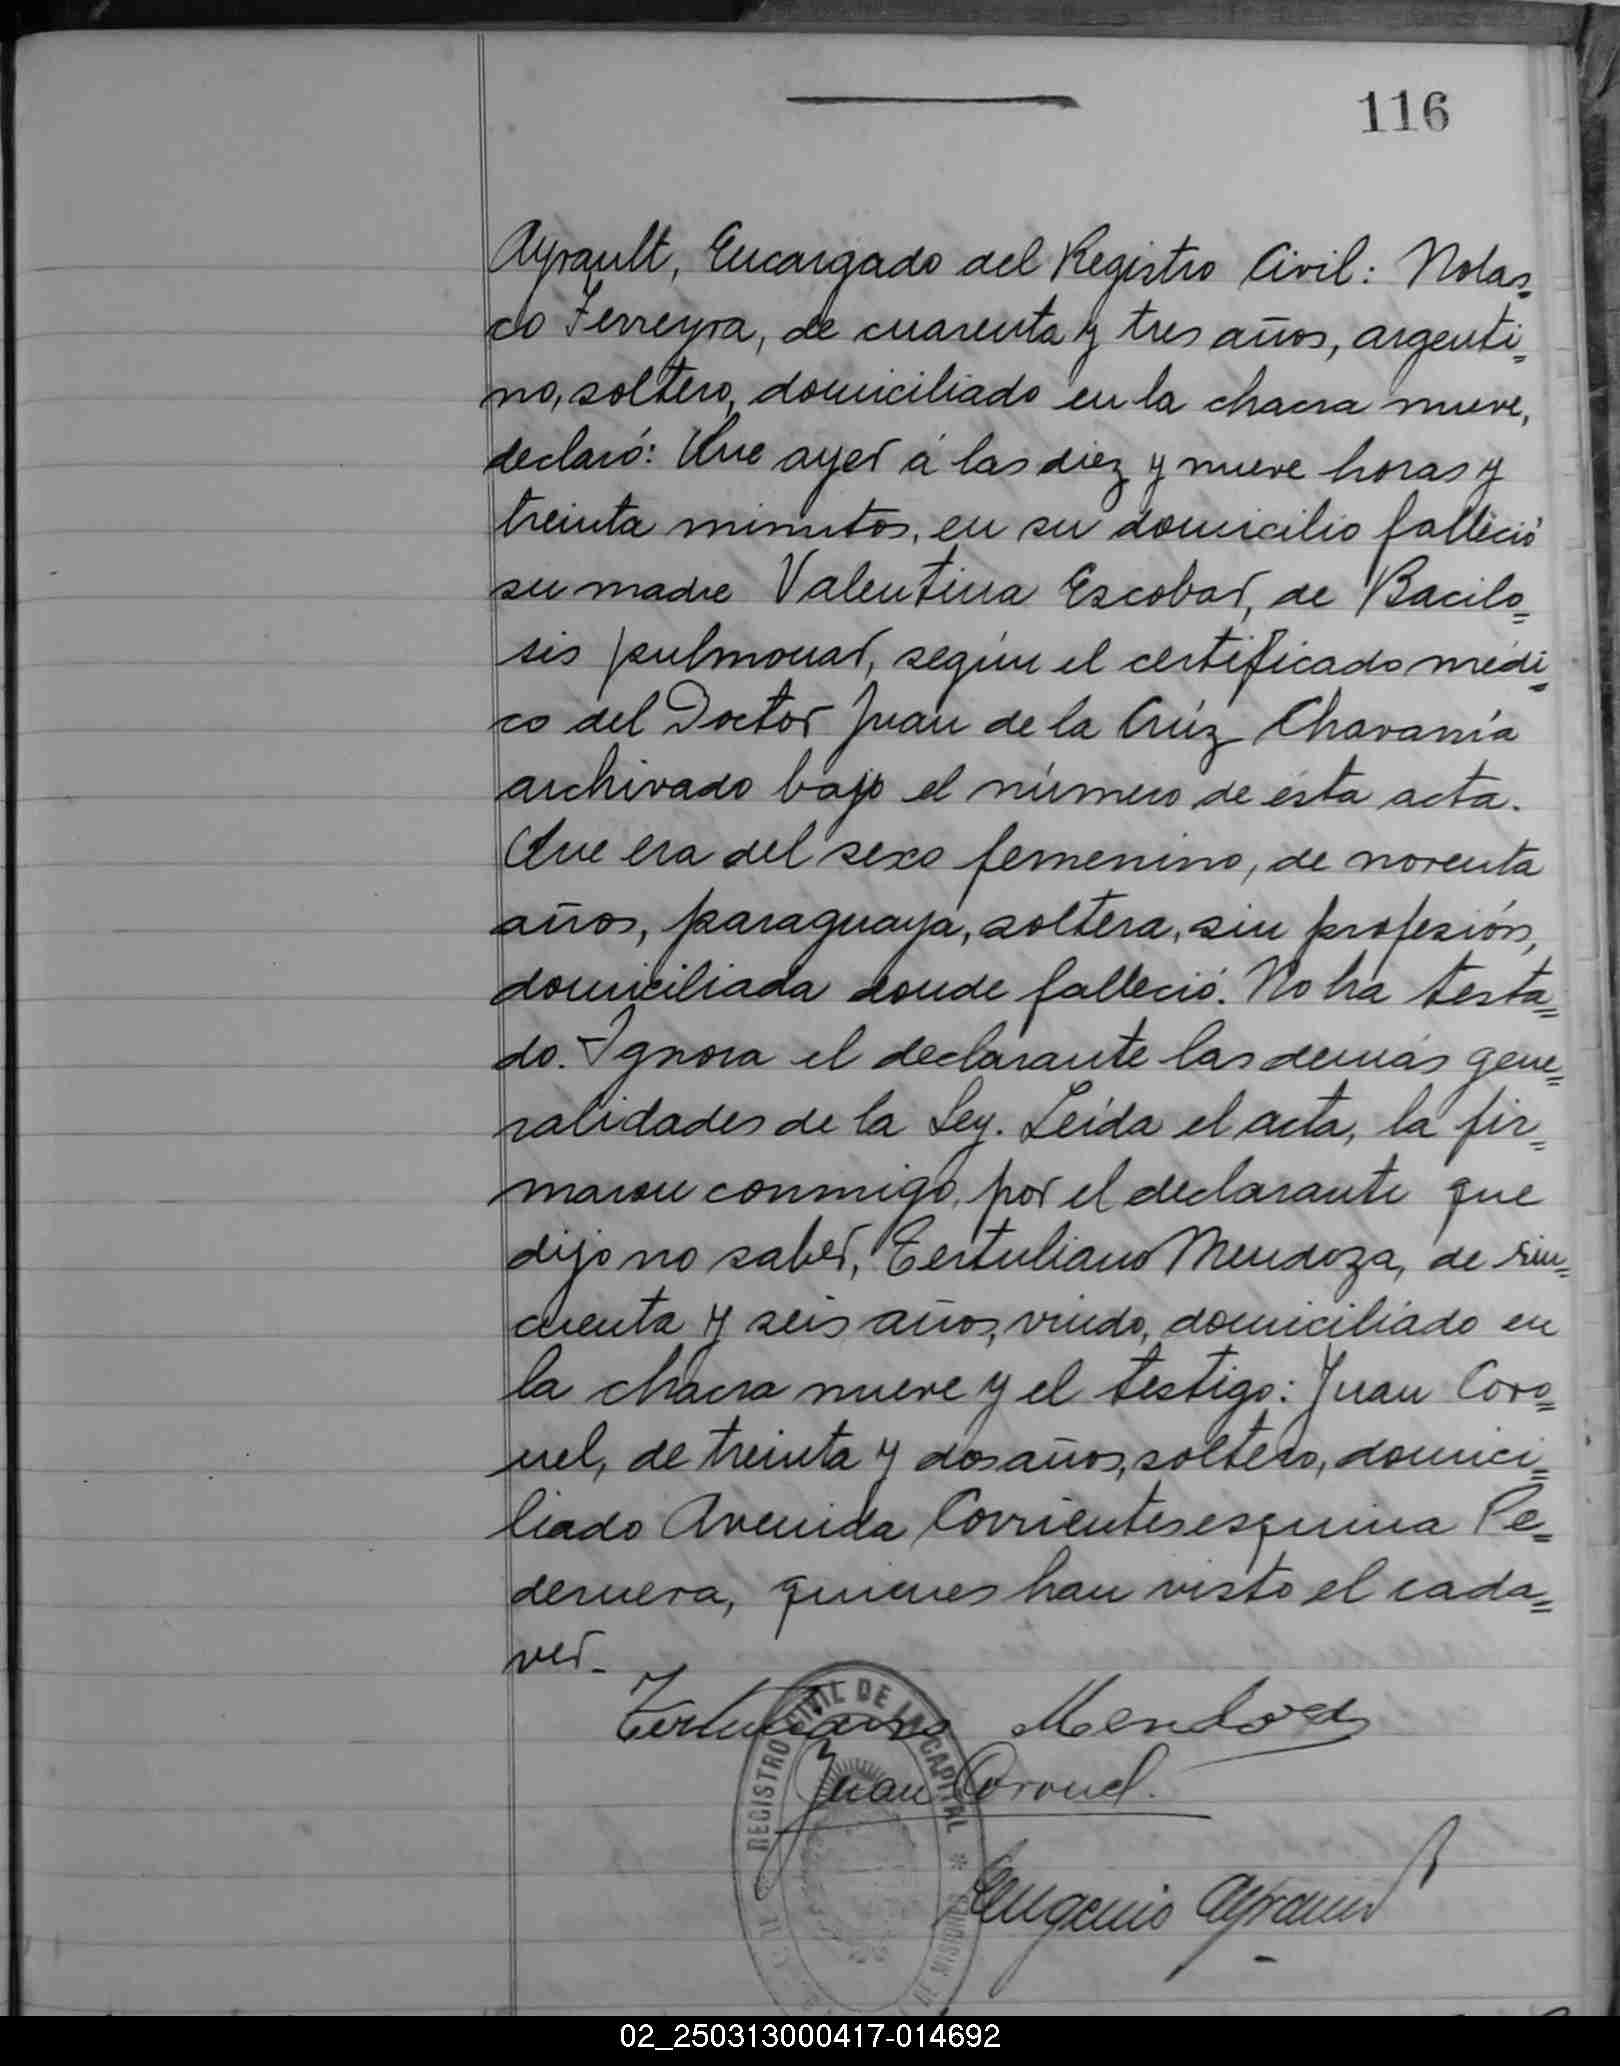 116
Ayrault, Encargado del Registro Civil: Nolas=
co Ferreyra, de cuarenta y tres años, argenti=
no, soltero, domiciliado en la chacra nueve,
declaró: Que ayer á las diez y nueve horas y
treinta minutos, en su domicilio falleció
su madre Valentina Escobar, de Bacilo=
sis pulmonar, según el certificado médi=
co del Doctor Juan de la Crúz Chavarría
archivado bajo el número de ésta acta.
Que era del sexo femenino, de noventa
años, paraguaya, soltera, sin profesión,
domiciliada donde falleció. No ha testa=
do. Ignora el declarante las demás gene=
ralidades de la Ley. Leída el acta, la fir=
maron conmigo, por el declarante que
dijo no saber, Tertuliano Mendoza, de sin=
cuenta y seis años, viudo, domiciliado en
la chacra nueve y el testigo: Juan Coro=
nel, de treinta y dos años, soltero, domici=
liado Avenida Corrientes esquina Pe=
dernera, quienes han visto el cada=
ver.
Tertuliano Mendoza
Juan Coronel.
Eugenio Ayrault
REGISTRO CIVIL DE LA CAPITAL * DE MISIONES
02_250313000417-014692